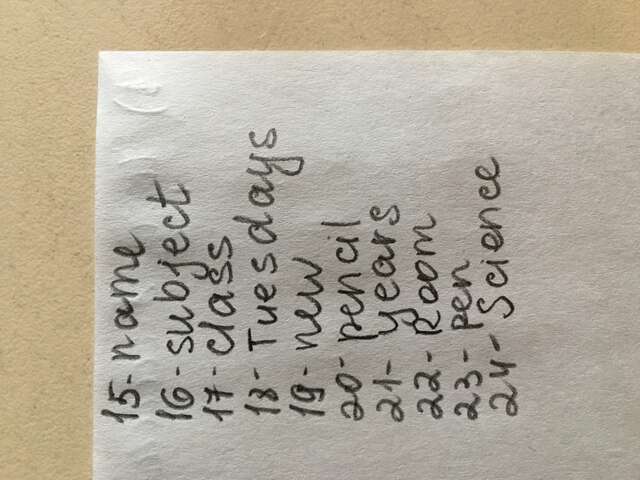 15- name
16- subject
17- class
18- Tuesdays
19- new
20- pencil
21- years
22- Room
23- pen
24- Science